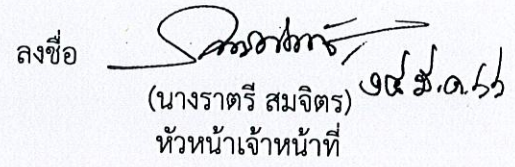 ลงชื่อ
(นางราตรี สมจิตร)
หัวหน้าเจ้าหน้าที่